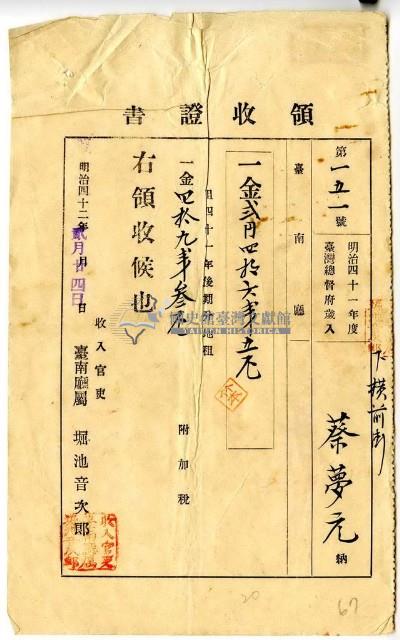 領收證書
第一五一號
明治四十一年度
臺灣總督府歲入
下橫前街
蔡夢元 納
臺南廳
一金貳円四拾六錢五厘
但四十一年後期分地租
一金四拾九錢參厘 附加稅
右領收候也
明治四十二年貳月廿四日
收入官吏
臺南廳屬 堀池音次郎
國史館臺灣文獻館
TAIWAN HISTORICA
20
67